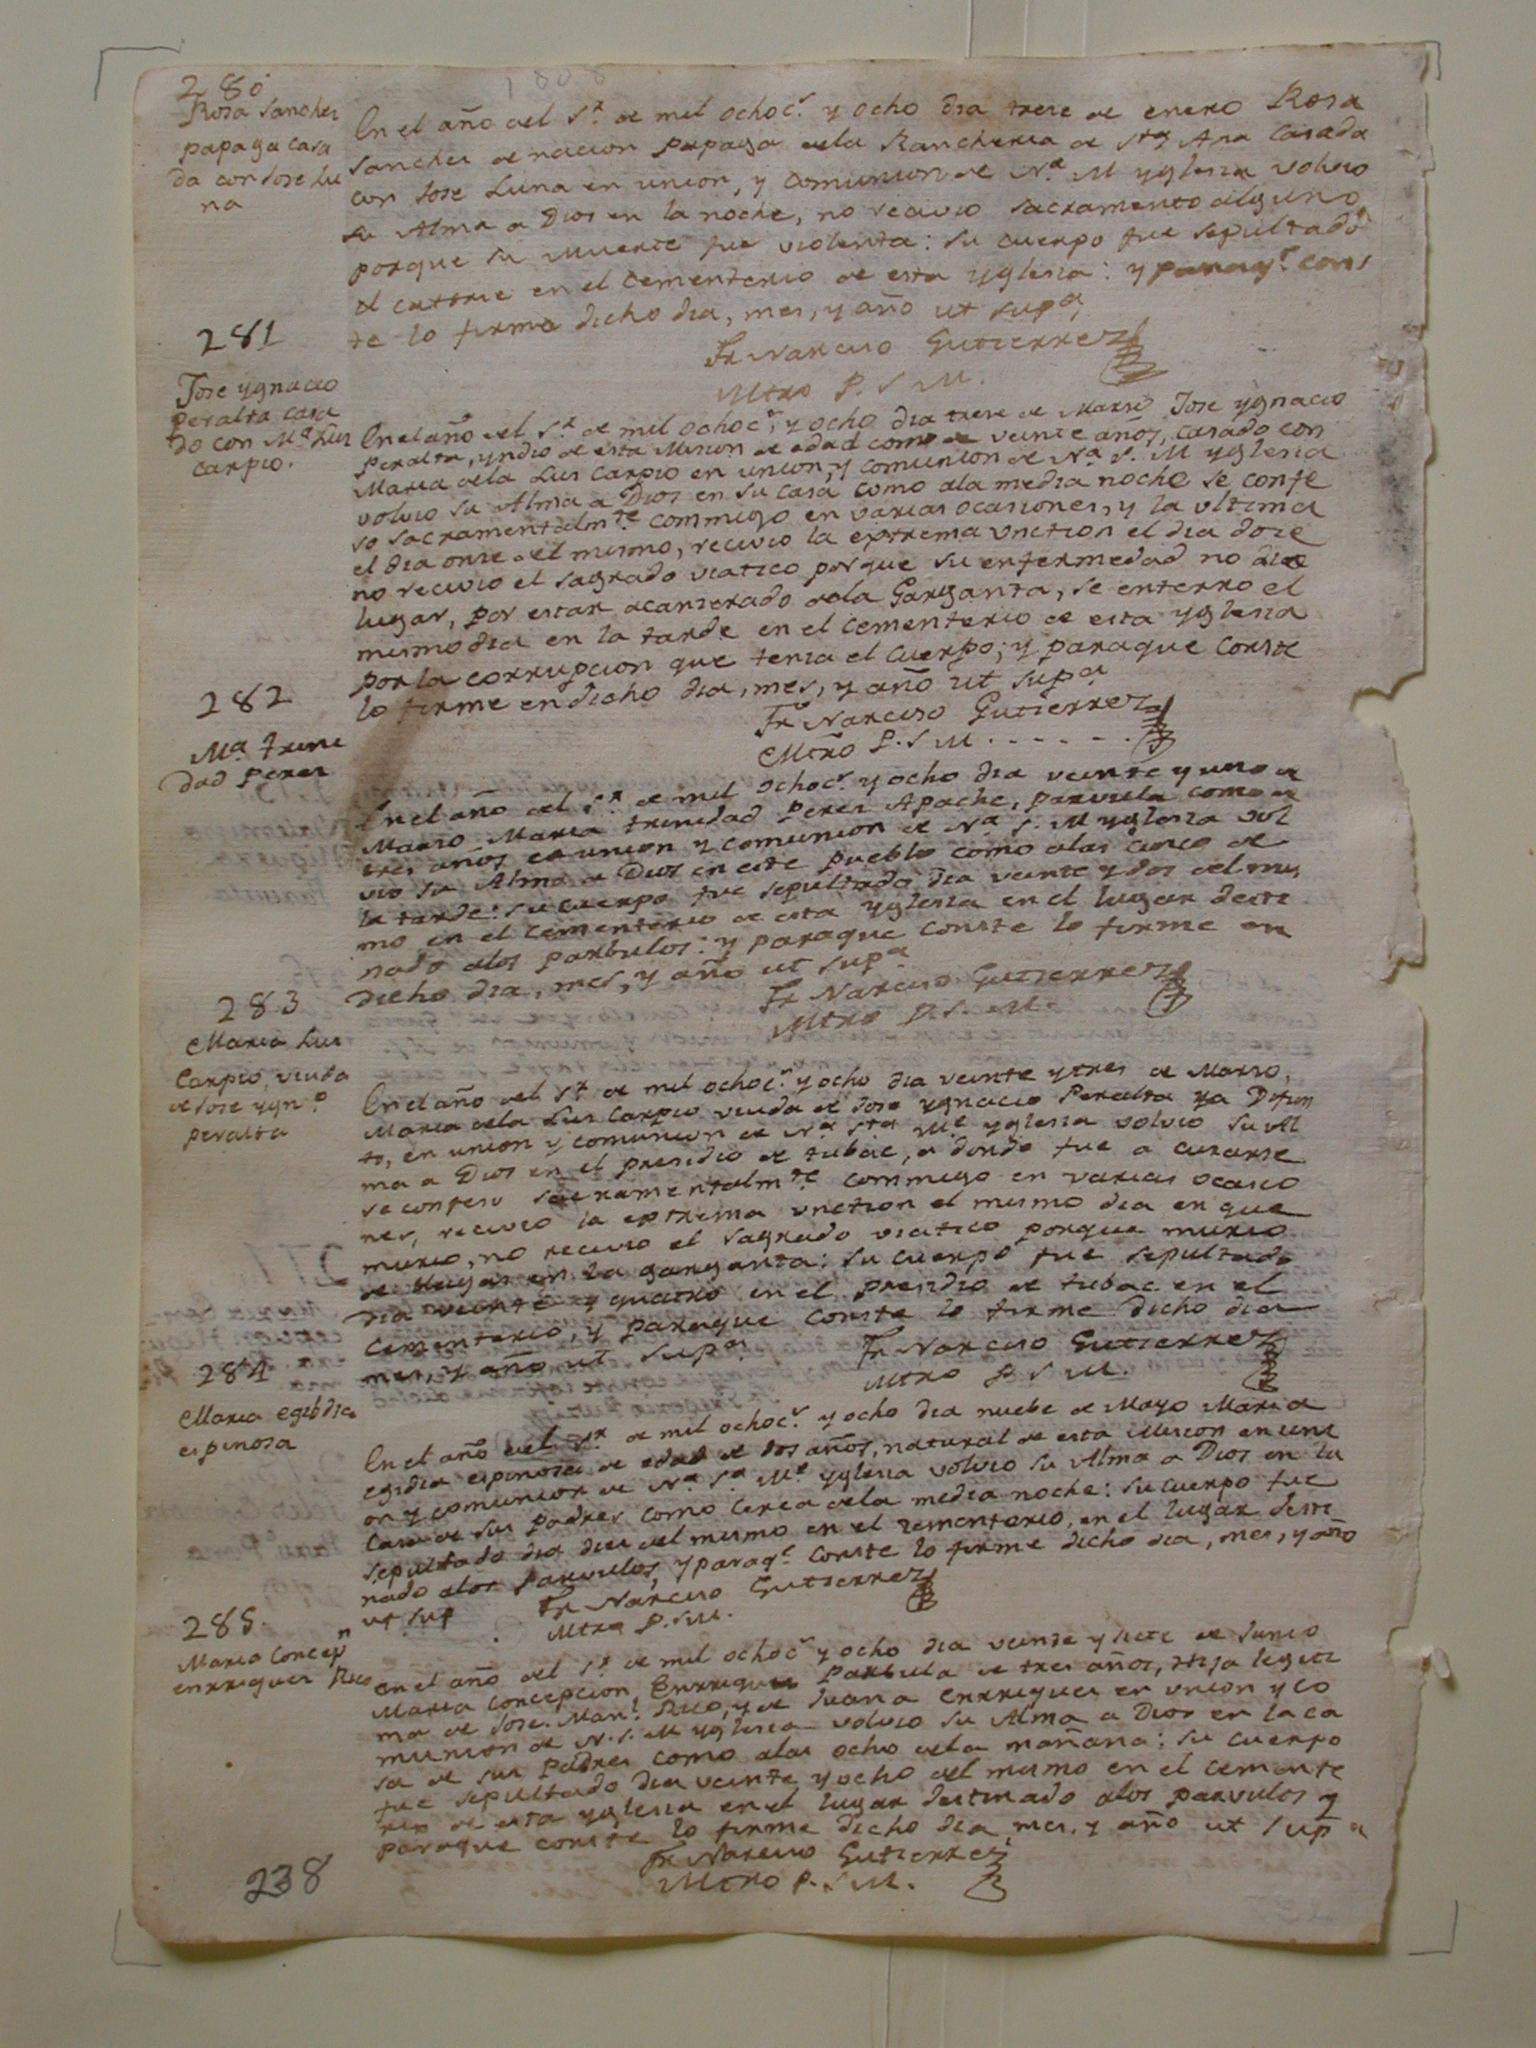 1808
280
Rosa Sanches
papaga casa
da con Jose Lu
na
En el año del Sr. de mil ochocs. y ocho dia trese de enero Rosa
Sanches de nacion papaga dela Rancheria de Sta Ana casada
con Jose Luna en union, y comunion de Na. M yglesia volvio
su Alma a Dios en la noche, no recivio sacramento alguno,
porque su muerte fue violenta: su cuerpo fue sepultado
el catorse en el cementerio de esta yglesia: y paraqe. cons
te lo firme dicho dia, mes, y año ut supa
Fr Narciso Gutierrez
Mtro P. S M.
281
Jose ygnacio
peralta casa
do con Ma. Lus
carpio.
En el año del Sr. de mil ochocs. y ocho dia trese de Marso Jose ygnacio
Peralta, yndio de esta Mision de edad como de veinte años, casado con
Maria dela Lus Carpio en union, y comunion de Na. S. M yglesia
volvio su Alma a Dios en su casa como ala media noche se confe
so sacramentalmte commigo en varias ocasiones, y la ultima
el dia onse del mismo, recivio la extrema unction el dia dose
no recivio el sagrado viatico porque su enfermedad no dio
lugar, por estar acanserado dela Garganta, se enterro el
mismo dia en la tarde en el cementerio de esta yglesia
por la corrupcion que tenia el cuerpo; y paraque conste
lo firme en dicho dia, mes, y año ut supa
Fr Narciso Gutierrez
Mtro P. S M.
282
Ma trini
dad Peres
En el año del Sr. de mil ochocs. y ocho dia veinte y uno de
Marso Maria trinidad Peres Apache, parvula como de
tres años en union y comunion de Na S. M yglesia vol
vio su Alma a Dios en este pueblo como alas cinco de
la tarde: su cuerpo fue sepultado dia veinte y dos del mis
mo en el cementerio de esta yglesia en el lugar desti
nado alos parbulos: y paraque conste lo firme en
dicho dia, mes, y año ut supa
Fr Narciso Gutierrez
Mtro P. S. M.
283
Maria Lus
Carpio, viuda
de Jose ygno
peralta
En el año del Sr. de mil ochocs. y ocho dia veinte y tres de Marso,
Maria dela Lus Carpio viuda de Jose ygnacio Peralta ya Difun
to, en union y comunion de Na Sta Me yglesia volvio su Al
ma a Dios en el presidio de tubac, a donde fue a curarse
se confeso sacramentalmte commigo en varias ocasio
nes, recivio la extrema unction el mismo dia en que
murio, no recivio el sagrado viatico porque murio
de llagas en la garganta: su cuerpo fue sepultado
dia veinte y quatro en el presidio de tubac en el
cementerio, y paraque conste lo firme dicho dia
mes, y año ut supa
Fr Narciso Gutierrez
Mtro P S M.
284
Maria egibdia
espinosa
En el año del Sr. de mil ochocs. y ocho dia nuebe de Mayo Maria
egidia espinosa de edad de dos años, natural de esta Mision en uni
on y comunion de Na. Sa. Me yglesia volvio su Alma a Dios en la
casa de sus padres como cerca dela media noche: su cuerpo fue
sepultado dia dies del mismo en el sementerio, en el lugar desti
nado alos parvulos, y paraqe. conste lo firme dicho dia, mes, y año
ut sup
Fr Narciso Gutierrez
Mtro P. S M.
285
Maria Concepn
enrriques Rico
en el año del Sr. de mil ochocs y ocho dia veinte y siete de Junio
Maria Concepcion, Enrriques parbula de tres años, Hija legiti
ma de Jose Manl. Rico, y de Juana enrriques en union y co
munion de N. S. M yglesia volvio su Alma a Dios en la ca
sa de sus padres como alas ocho dela mañana: su cuerpo
fue sepultado dia veinte y ocho del mismo en el cemente
rio de esta yglesia en el lugar destinado alos parvulos y
paraque conste lo firme dicho dia, mes, y año ut supa
Fr Narciso Gutierrez
Mtro P. S M.
238